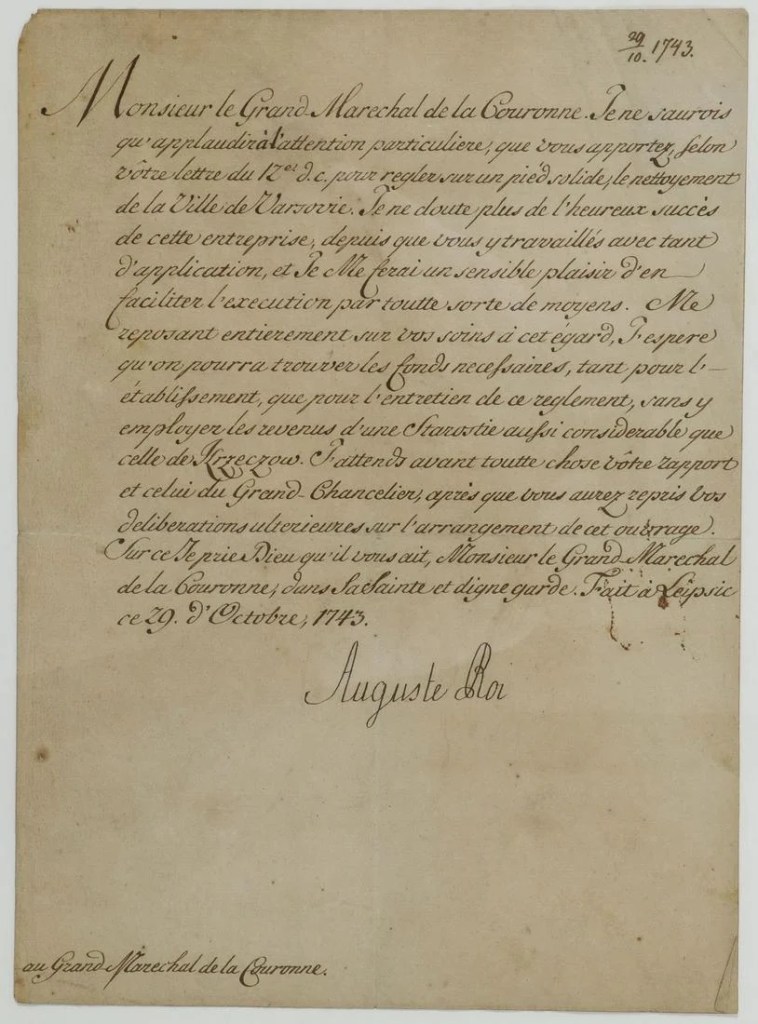 29/10. 1743.
Monsieur le Grand-Marechal de la Couronne. Je ne saurois
qu'applaudir à l'attention particuliere, que vous apportez, selon
vôtre lettre du 12.e d. c. pour regler sur un piéd solide, le nettoyement
de la Ville de Varsovie. Je ne doute plus de l'heureux succès
de cette entreprise, depuis que vous y travaillés avec tant
d'application, et Je Me ferai un sensible plaisir d'en
faciliter l'execution par toutte sorte de moyens. Me
reposant entierement sur vos soins à cet égard, J'espere
qu'on pourra trouver les fonds necessaires, tant pour l'
établissement, que pour l'entretien de ce reglement, sans y
employer les revenus d'une Starostie aussi considerable que
celle de . J'attends avant toutte chose vôtre rapport
et celui du Grand-Chancelier, après que vous aurez repris vos
deliberations ulterieures sur l'arrangement de cet ouvrage.
Sur ce Je prie Dieu qu'il vous ait, Monsieur le Grand-Marechal
de la Couronne, dans Sa Sainte et digne garde. Fait à Leipsic
ce 29. d'Octobre, 1743.
Auguste Roi
au Grand-Marechal de la Couronne.